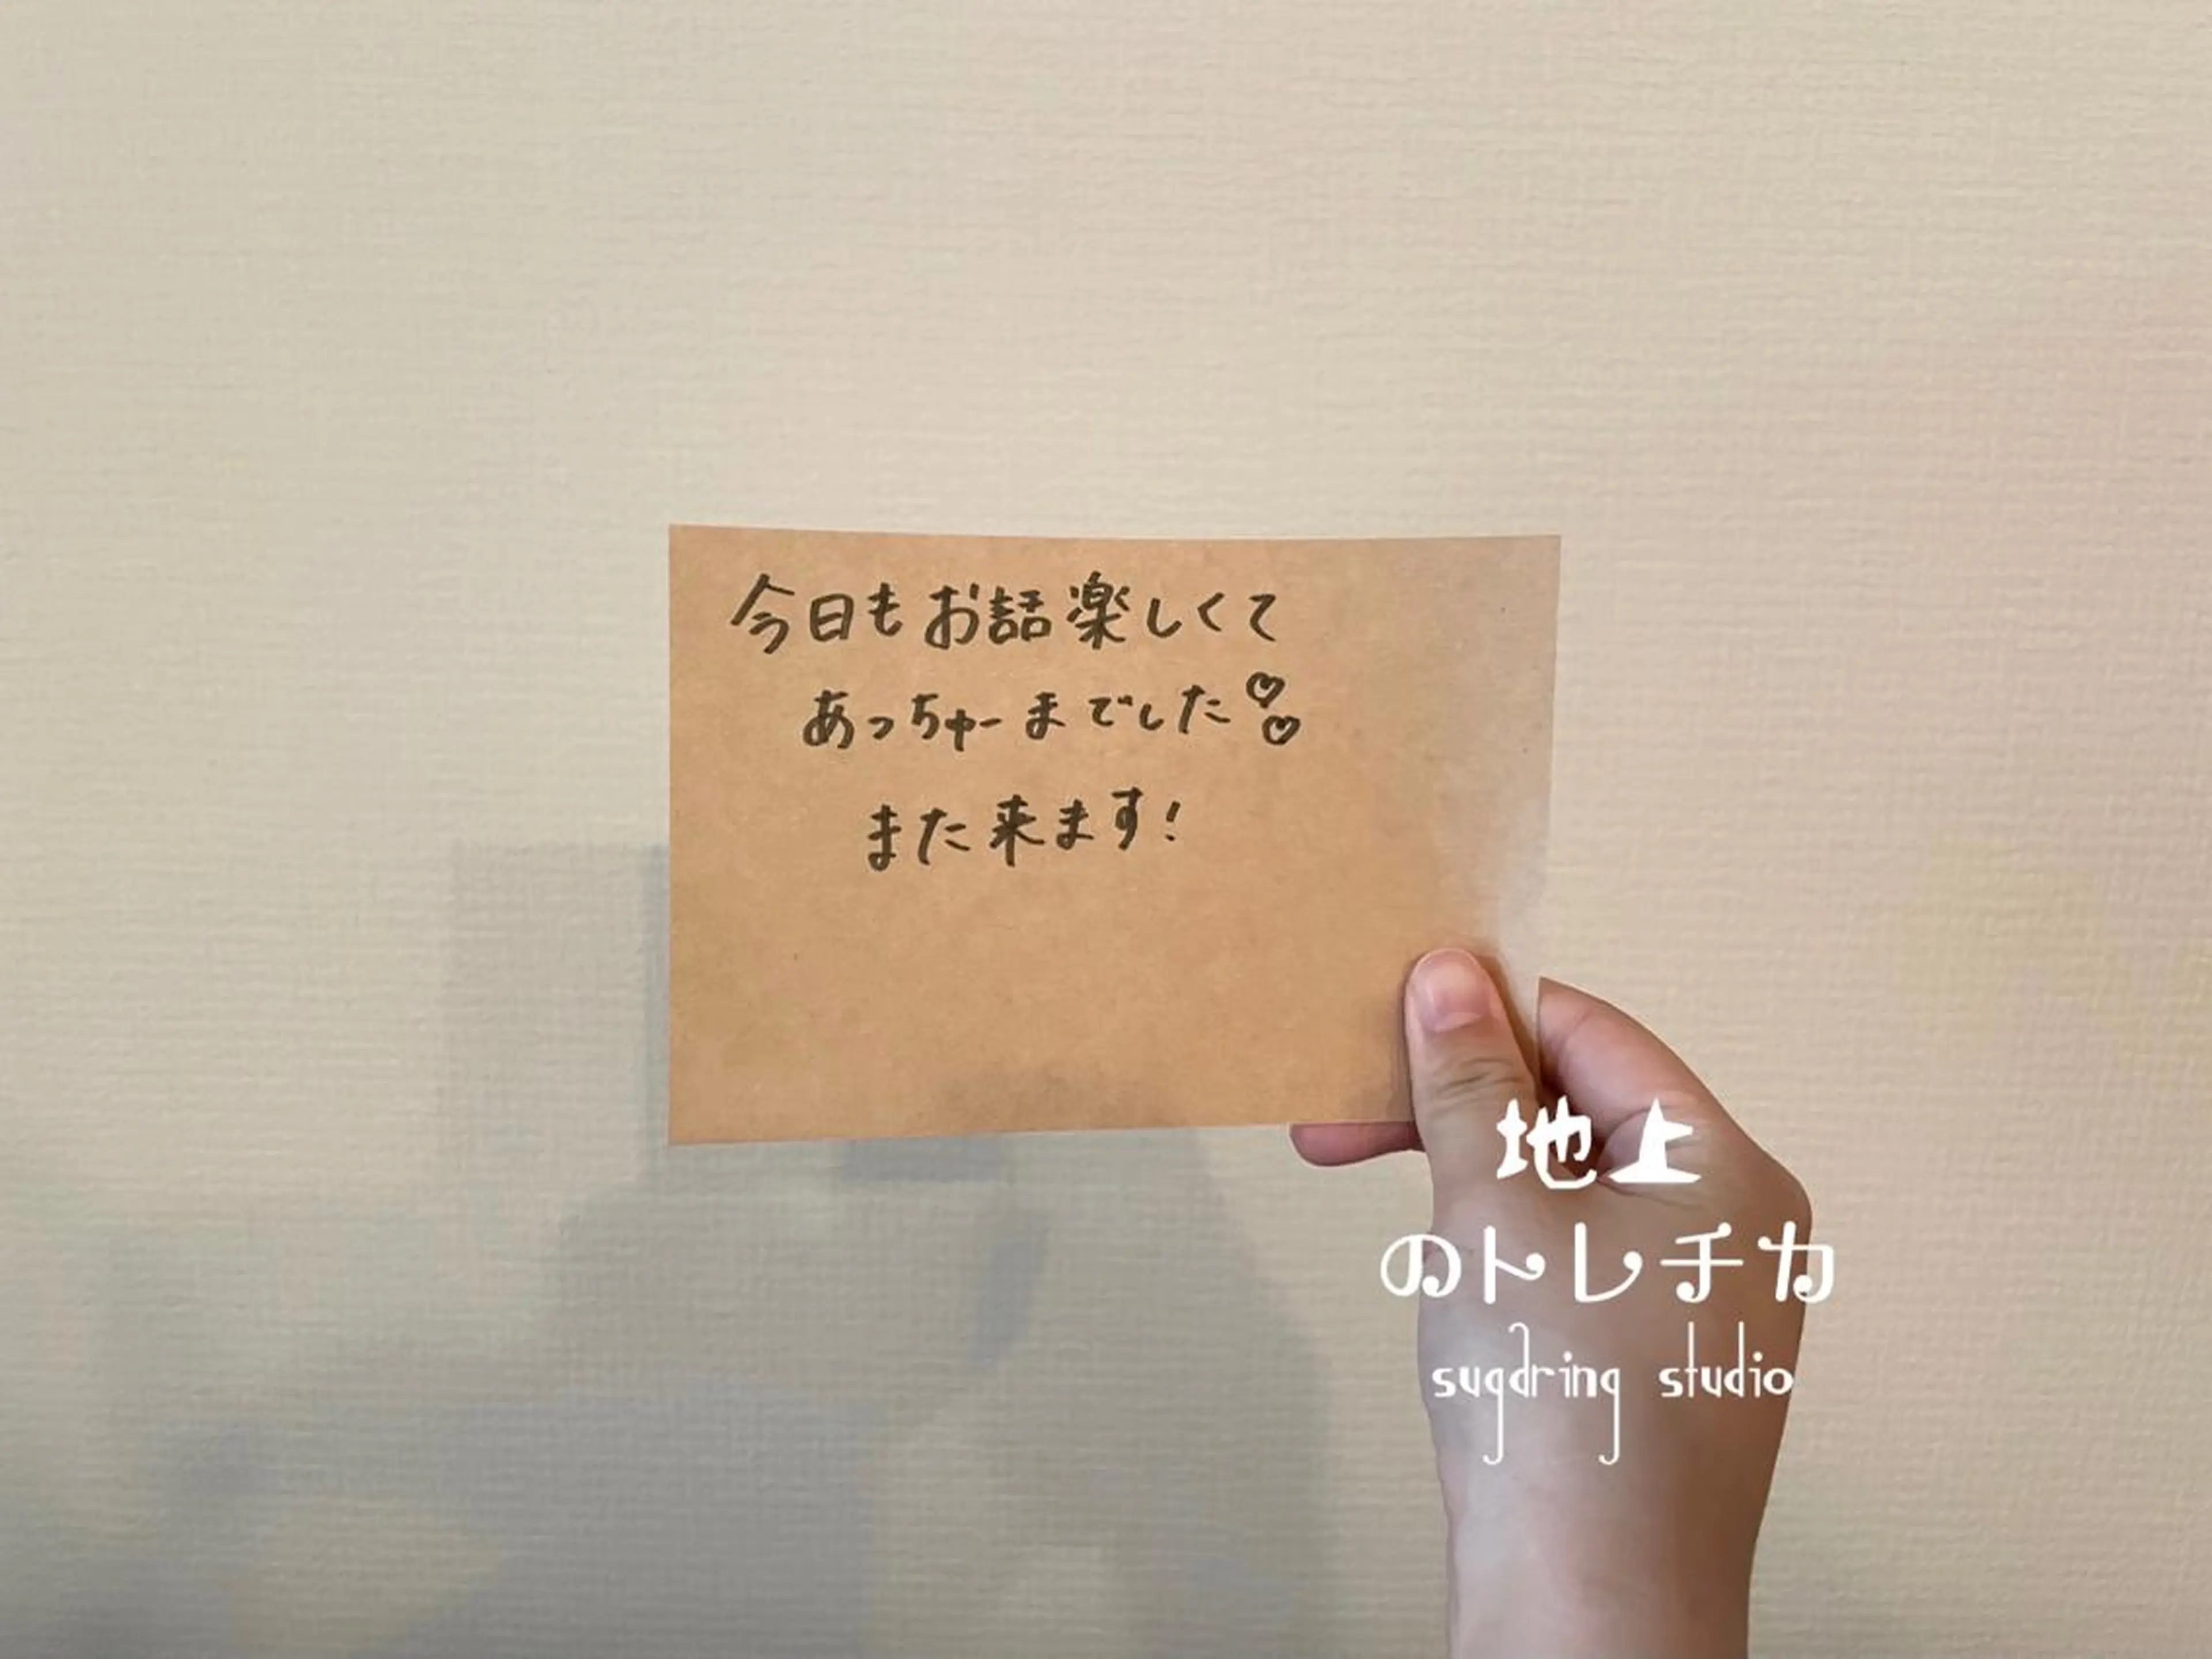 今日もお話楽しくて
あっちゅーまでした♡♡
また来ます!
地上
のトレチカ
sugdring studio